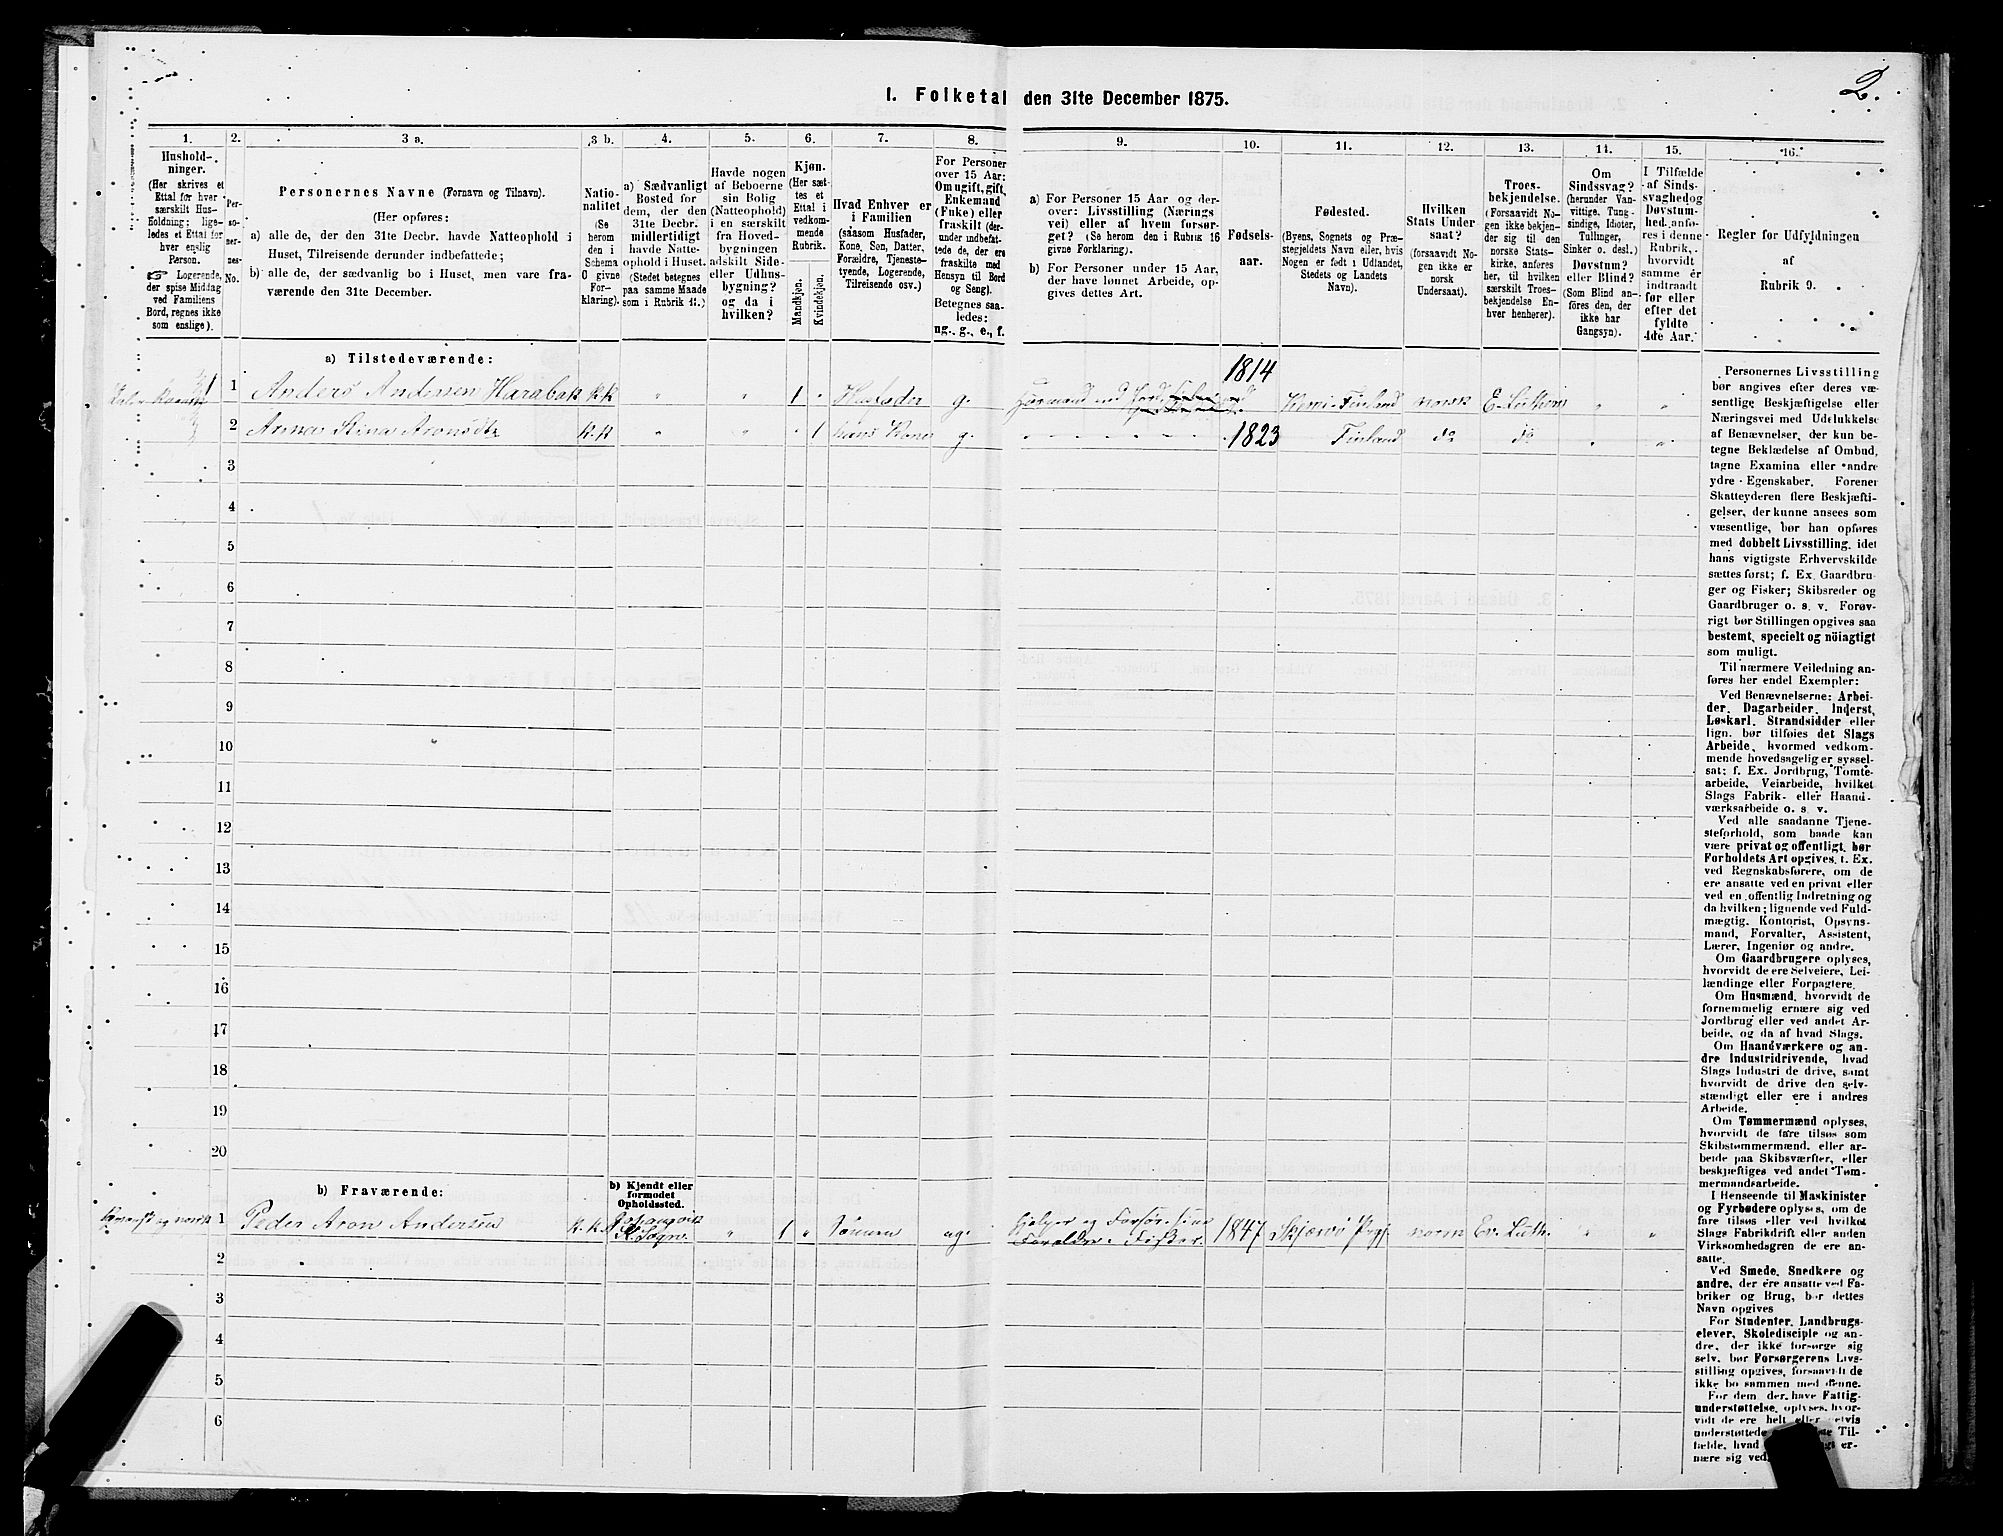 2.
I. Folketal den 31te December 1875.
1.
Hushold-
ninger.
(Her skrives et
Ettal for hver
særskilt Hus-
holdning; lige-
ledes et Ettal for
hver enslig
Person.
☞ Logerende,
der spise Middag
ved Familiens
Bord, regnes ikke
som enslige).
2.
Per-
so-
ner-
nes
No.
3 a.
Personernes Navne (Fornavn og Tilnavn).
(Her opføres:
a) alle de, der den 31te Decbr. havde Natteophold i
Huset, Tilreisende derunder indbefattede;
b) alle de, der sædvanlig bo i Huset, men vare fra-
værende den 31te December.
3 b.
Natio-
nalitet
(Se
herom
den i
Schema
O givne
For-
klaring).
4.
a) Sædvanligt
Bosted for
dem, der den
31te Decbr.
midlertidigt
havde Natte-
ophold i Huset.
(Stedet betegnes
paa samme Maade
som i Rubrik 11.)
5.
Havde nogen
af Beboerne
sin Bolig
(Natteophold)
i en særskilt
fra Hoved-
bygningen
adskilt Side-
eller Udhus-
bygning?
og da i
hvilken?
6.
Kjøn.
(Her sæt-
tes et
Ettal i
vedkom-
mende
Rubrik.
Mandkjøn.
Kvindekjøn.
7.
Hvad Enhver er
i Familien
(saasom Husfader,
Kone, Søn, Datter,
Forældre, Tjeneste-
tyende, Logerende,
Tilreisende osv.)
8.
For Personer
over 15 Aar:
Om ugift, gift,
Enkemand
(Enke) eller
fraskilt (der-
under indbefat-
tede de, der ere
fraskilte med
Hensyn til Bord
og Seng).
Betegnes saa-
ledes:
ug., g., e., f.
9.
a) For Personer 15 Aar og der-
over: Livsstilling (Nærings
vei) eller af hvem forsør-
get? (Se herom den i Rubrik 16
givne Forklaring).
b) For Personer under 15 Aar,
der have lønnet Arbeide, op-
gives dettes Art.
10.
Fødsels-
aar.
11.
Fødested.
(Byens, Sognets og Præ-
stegjeldets Navn eller, hvis
Nogen er født i Udlandet,
Stedets og Landets
Navn).
12.
Hvilken
Stats Under
saat?
(forsaavidt No-
gen ikke er
norsk
Undersaat).
13.
Troes-
bekjendelse.
(Forsaavidt No-
gen ikke bekjen-
der sig til den
norske Stats-
kirke, anføres
her, til hvilken
særskilt Troes-
bekjendelse En-
hver henhører).
14.
Om
Sindssvag?
(herunder Van-
vittige, Tung-
sindige, Idioter,
Tullinger,
Sinker o. desl.)
Døvstum?
eller Blind?
(Som Blind an-
føres den, der
ikke har
Gangsyn).
15.
I Tilfælde
af Sinds-
svaghed og
Døvstum-
hed, anfø-
res i denne
Rubrik,
hvorvidt
samme er
indtraadt
før eller
efter det
fyldte
4de Aar.
16.
Regler for Udfyldningen
af
Rubrik 9.
a) Tilstedeværende:
1 Anders Andersen Harabak K.K " " 1 " Husfader g. 1814 Kemi-Finland norsk E. Luthers " "
2 Anna Stina Aronsdtr K.K " " " 1 hans Kone g. 1823 Finland do do " "
3
4
5
6
7
8
9
10
11
12
13
14
15
16
17
18
19
20
b) Fraværende:
b) Kjendt eller
formodet
Opholdssted.
Kvænsk og norsk 1 Peder Aron Andersen K.K. " 1 " Sönnen ug. Hjelper og Forsör. sine
Forældre. Fisker. 1847 Skjærvö Prgj. norsk Ev. Luth. " "
2
3
4
5
6
Personernes Livsstilling
bør angives efter deres væ-
sentlige Beskjæftigelse eller
Næringsvei med Udelukkelse
af Benævnelser, der kun be-
tegne Beklædelse af Ombud,
tagne Examina eller andre
ydre Egenskaber. Forener
Skatteyderen flere Beskjæfti-
gelser, der kunne ansees som
væsentlige, bør han opføres
med dobbelt Livsstilling, idet
hans vigtigste Erhvervskilde
sættes først; f. Ex. Gaardbru-
ger og Fisker; Skibsreder og
Gaardbruger o. s. v. Forøv-
rigt bør Stillingen opgives saa
bestemt, specielt og nöiagtigt
som muligt.
Til nærmere Veiledning an-
føres her endel Exempler:
Ved Benævnelserne: Arbei-
der, Dagarbeider, Inderst,
Løskarl, Strandsidder eller
lign. bør tilføies det Slags
Arbeide, hvormed vedkom-
mende hovedsagelig er syssel-
sat; f. Ex. Jordbrug, Tomte-
arbeide, Veiarbeide, hvilket
Slags Fabrik- eller Haand-
værksarbeide o. s. v.
Ved alle saadanne Tjene-
steforhold, som baade kan
være privat og offentligt, bør
Forholdets Art opgives, f. Ex.
ved Regnskabsførere, om de
ere ansatte ved en privat eller
ved en offentlig Indretning og
da hvilken; lignende ved Fuld-
mægtig, Kontorist, Opsyns-
mand, Forvalter, Assistent,
Lærer, Ingeniør og andre.
Om Gaardbrugere oplyses,
hvorvidt de ere Selveiere, Lei-
lændinge eller Forpagtere.
Om Husmænd, hvorvidt de
fornemmelig ernære sig ved
Jordbrug eller ved andet Ar-
beide, og da af hvad Slags.
Om Haandværkere og an-
dre Industridrivende, hvad
Slags Industri de drive, samt
hvorvidt de drive den selv-
stændigt eller ere i andres
Arbeide.
Om Tømmermænd oplyses,
hvorvidt de fare tilsøs som
Skibstømmermænd, eller ar-
beide paa Skibsværfter, eller
beskjæftiges ved andet Tøm-
mermandsarbeide.
I Henseende til Maskinister
og Fyrbødere oplyses, om de
fare tilsøs eller ved hvilket
Slags Fabrikdrift eller anden
Virksomhedsgren de ere an-
satte.
Ved Smede, Snedkere og
andre, der ere ansatte ved Fa-
briker og Brug, bør dettes
Navn opgives
For Studenter, Landbrugs-
elever, Skoledisciple og an-
dre, der ikke forsørge sig
selv, bør Forsørgerens Livs-
stilling opgives, forsaavidt de
ikke bo sammen med denne.
For dem, der have Fattig-
understøttelse, oplyses, hvor-
vidt de ere helt eller delvis
understøttede Til-
fælde, hvad er-
nære sig ved.